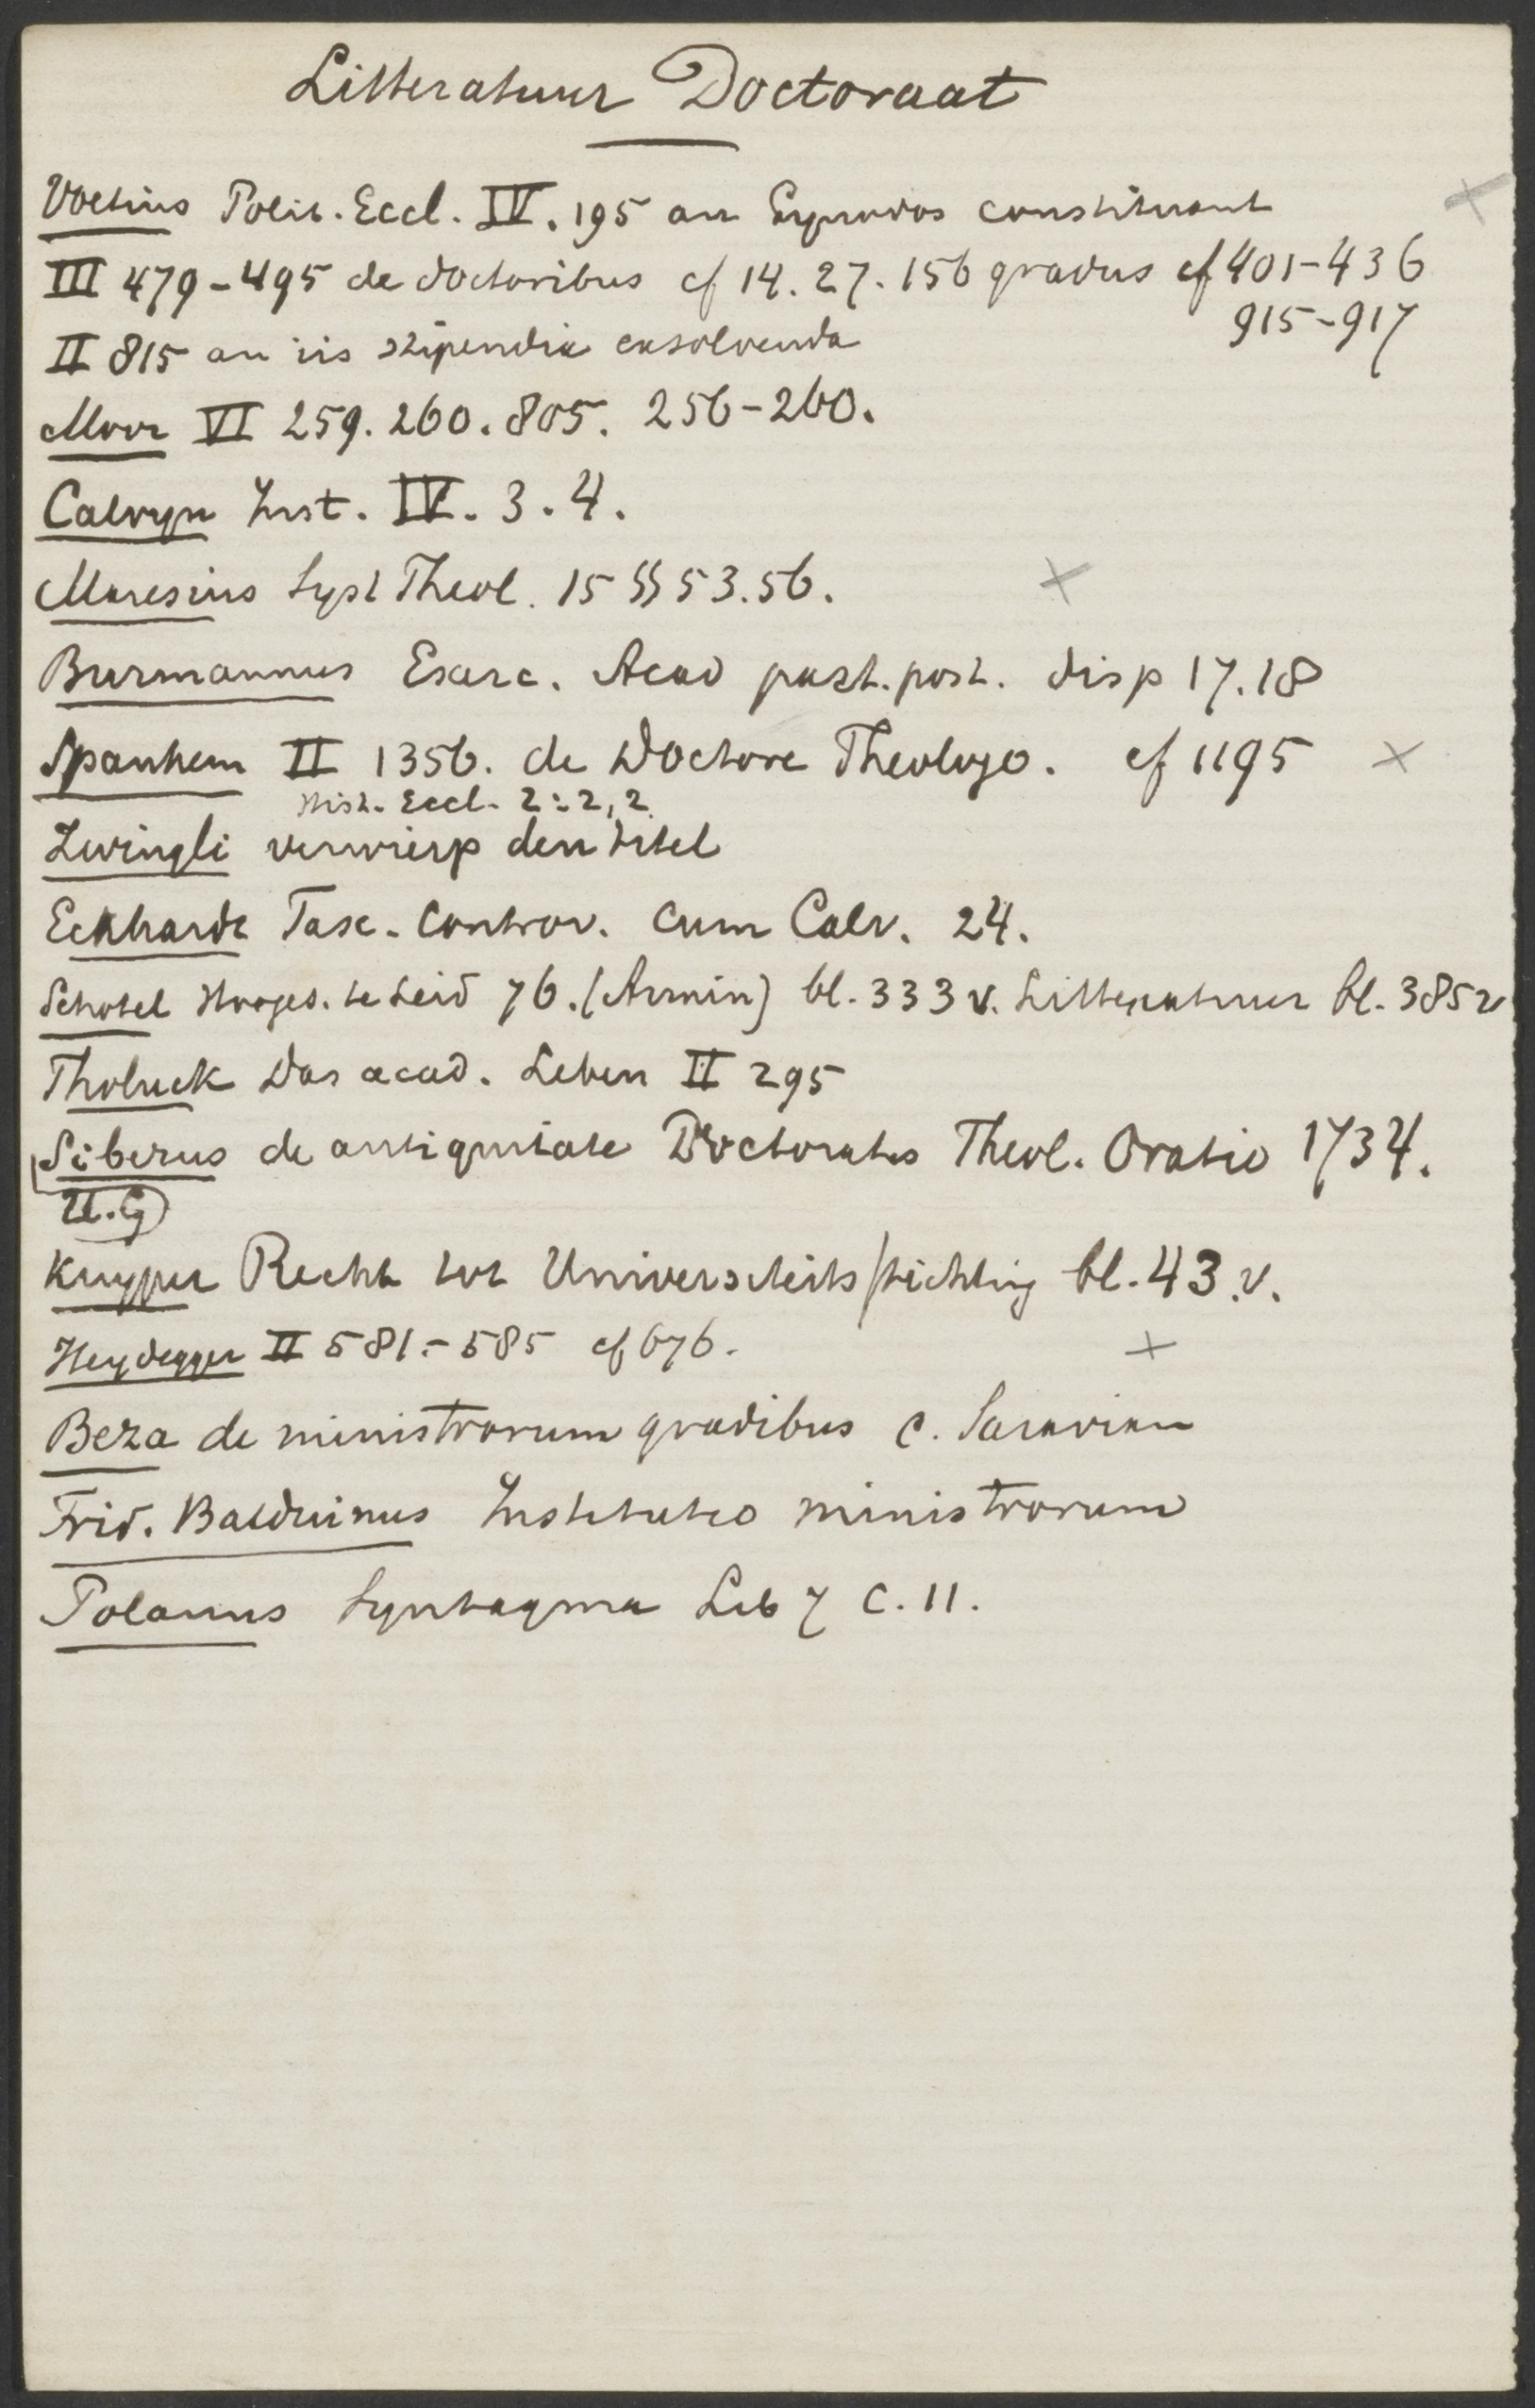 Litteratuur Doctoraat
Voetius Polit. Eccl. IV. 195 an Synodos constituant
III 479-495 de doctoribus cf 14. 27. 156 gradus cf 401-436
915-917
II 815 an iis stipendia exsolvenda
Moor VI 259. 260. 805. 256-260.
Calvyn Inst. IV. 3. 4.
Maresius Syst Theol. 15 §§ 53. 56.
Burmannus Exerc. Acad part. post. disp 17. 18
Spanhem II 1356. de Doctore Theologo. cf 1195
Hist. Eccl. 2:2, 2.
Zwingli verwierp den titel
Eckhardt Fasc. Controv. cum Calv. 24.
Schotel Hooges. te Leid 76. (Armin) bl. 333 v. Litteratuur bl. 385 v
Tholuck Das acad. Leben II 295
Siberus de antiquitate Doctoratus Theol. Oratio 1734.
U.G
Kuyper Recht tot Universiteitsstichting bl. 43 v.
Heydegger II 581-585 cf 676.
Beza de ministrorum gradibus c. Saraviam
Frid. Balduinus Institutio ministrorum
Polanus Syntagma Lib 7 C. 11.